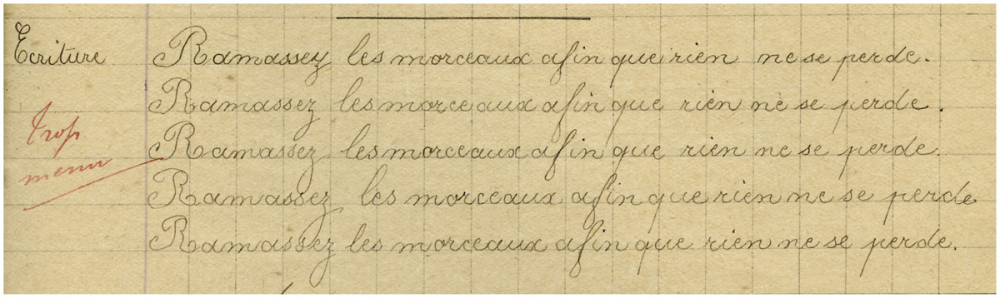 Ecriture Ramassez les morceaux afin que rien ne se perde.
Ramassez les morceaux afin que rien ne se perde.
trop Ramassez les morceaux afin que rien ne se perde.
menu Ramassez les morceaux afin que rien ne se perde
Ramassez les morceaux afin que rien ne se perde.